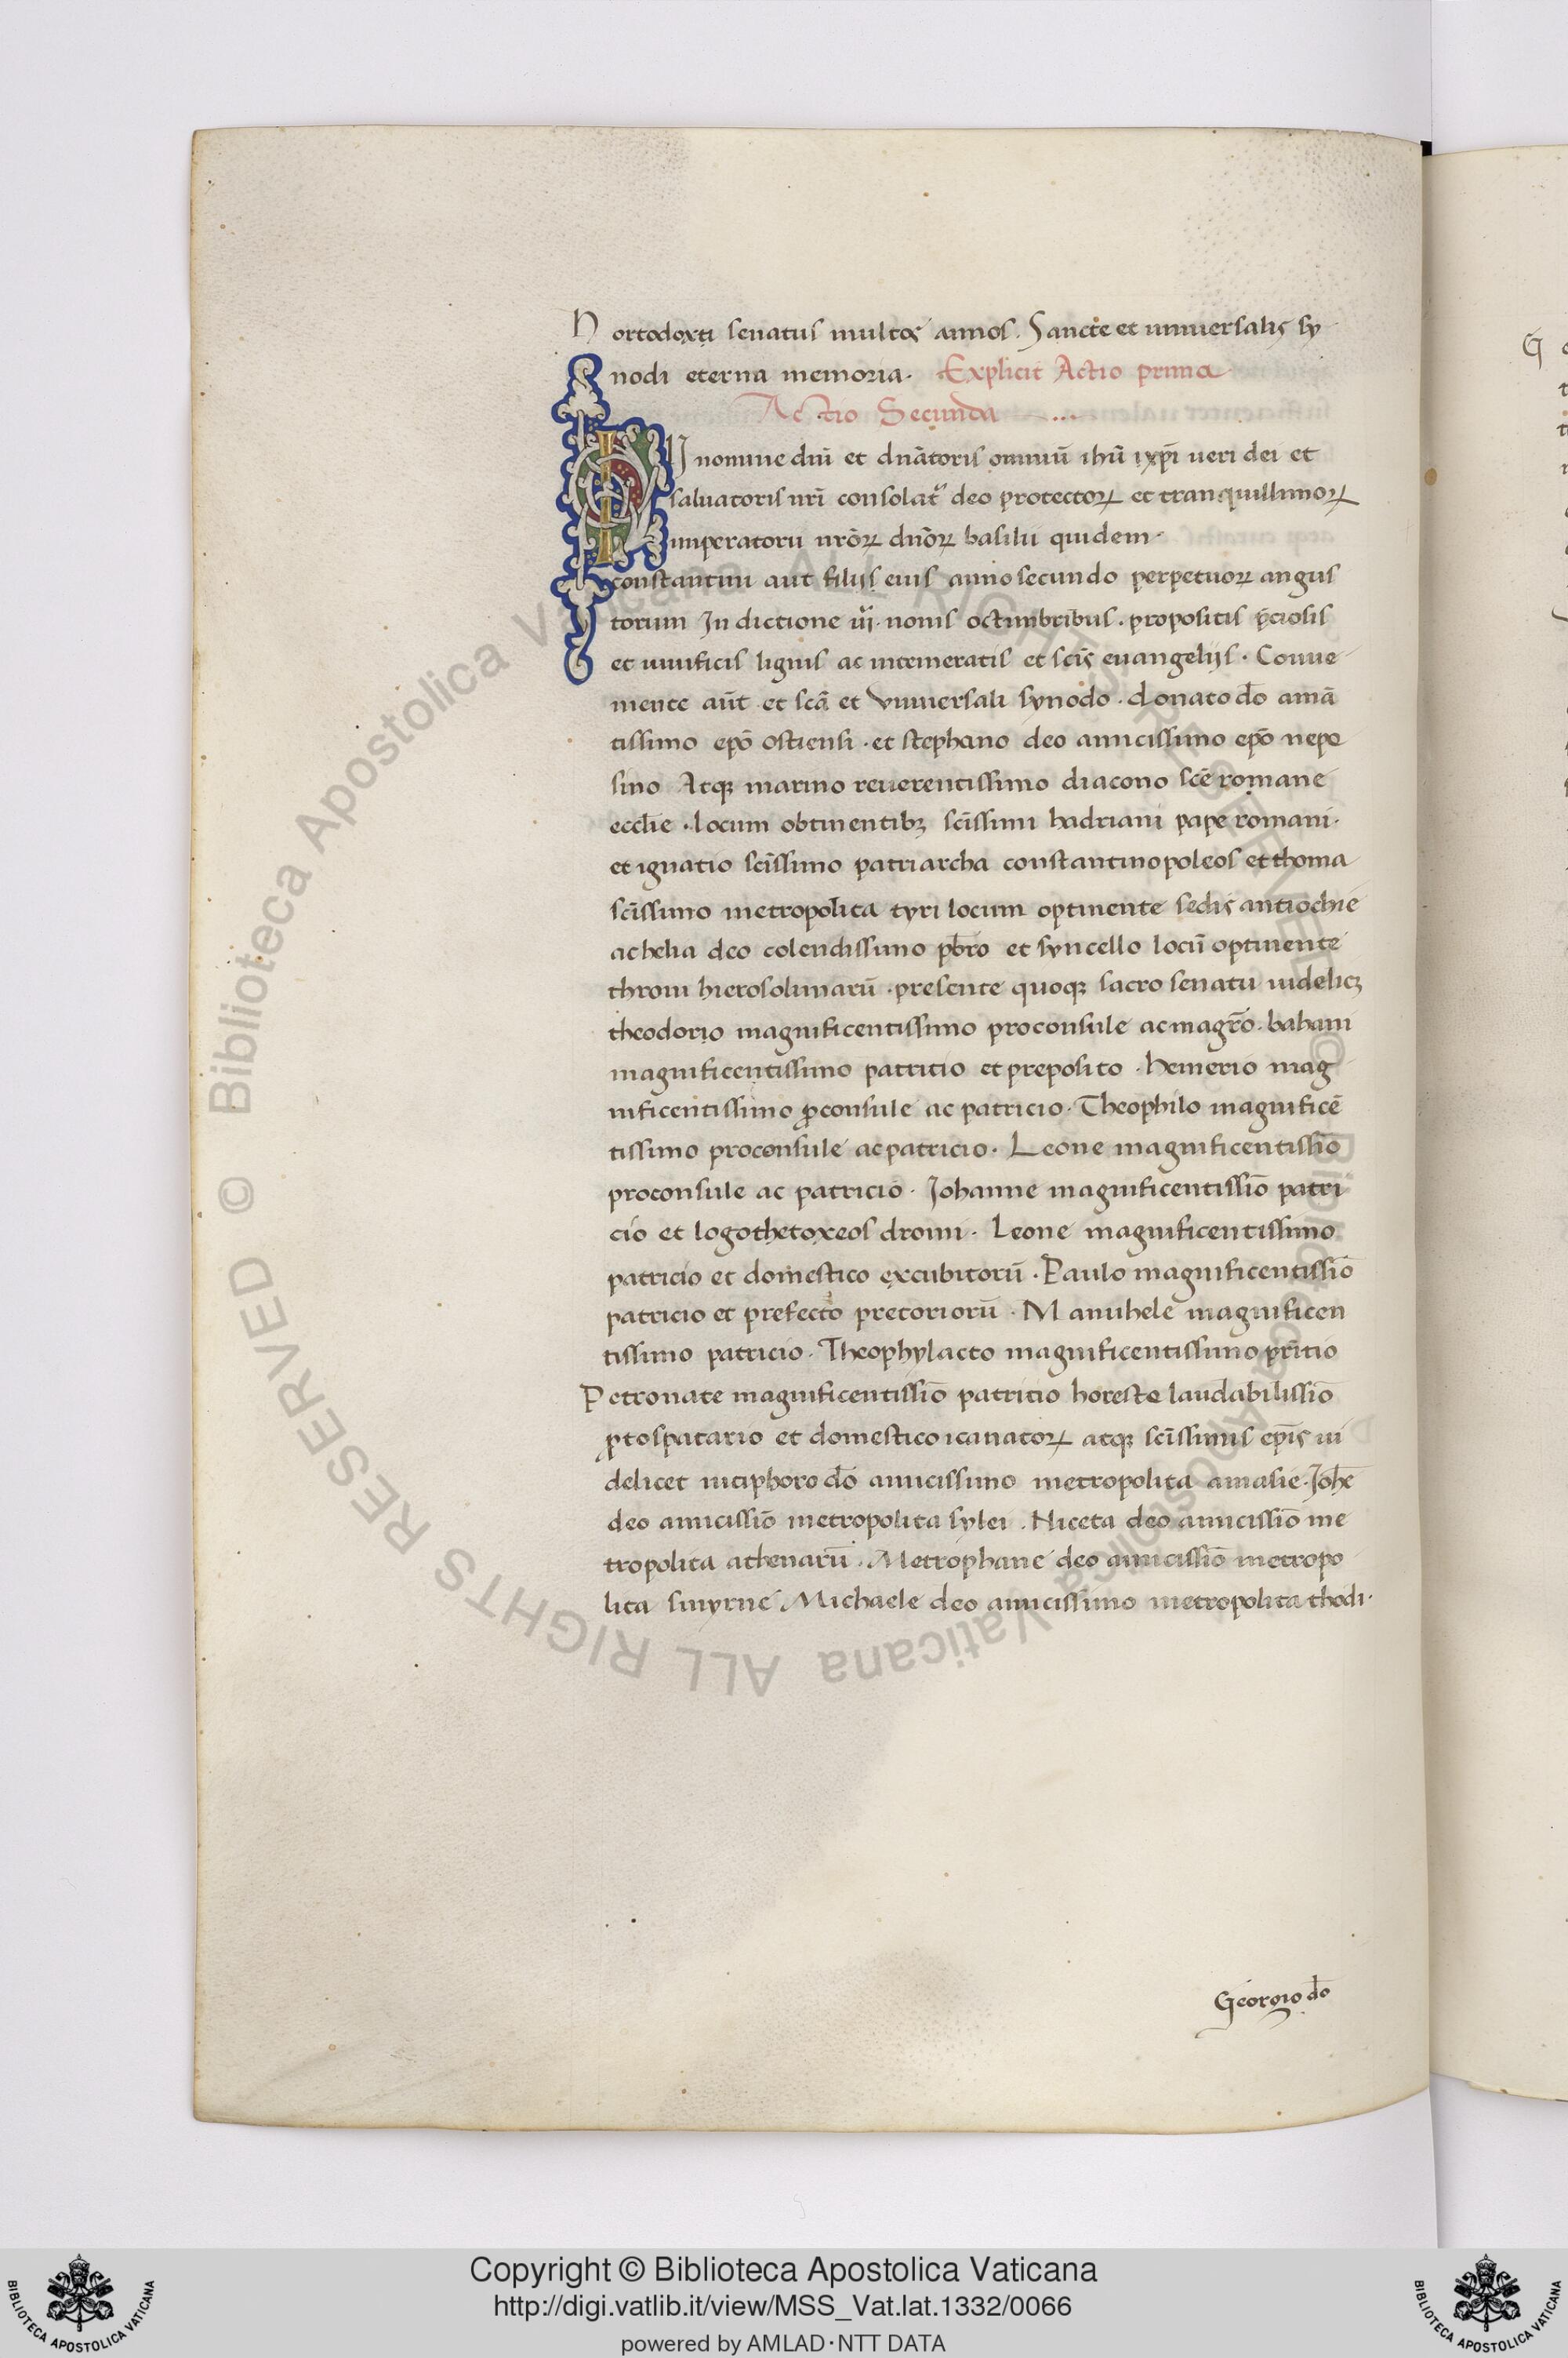 H ortodoxti senatus multos annos. Sancte et universalis sy
nodi eterna memoria. Explicit Actio prima
Actio Secunda
IN nomine dn̄i et dn̄atoris omniū ihū ixp̄i ueri dei et
saluatoris nr̄i consolat᷒ deo protectoꝝ et tranquillimoꝝ
imperatoru nr̄oꝝ dn̄oꝝ basilii quidem.
constantini aut filijs eius anno secundo perpetuoꝝ angus
torum In dictione iii. nonis octimbribus. propositis p̄ciosis
et uiuificis lignis ac intemeratis et sc̄is euangelijs. Conue
niente aūt et sc̄ā et vniuersali synodo. donato do̅ amā
tissimo ep̄o ostiensi. et stephano deo amicissimo ep̄o nepe
sino Atqꝫ marino reuerentissimo diacono sc̄e romane
eccl̄ie. locum obtinentibꝫ sc̄issimi hadriani pape romani.
et ignatio sc̄issimo patriarcha constantinopoleos et thoma
sc̄issimo metropolita tyri locum optinente sedis antiochie
ac helia deo colendissimo pb̄ro et syncello locū optinente
throni hierosolimarū. presente quoqꝫ sacro senatu uidelicꝫ
theodorio magnificentissimo proconsule ac magr̄o. bahani
magnificentissimo patritio et preposito. Hemerio mag
nificentissimo ꝓconsule ac patricio. Theophilo magnificē
tissimo proconsule ac patricio. Leone magnificentissio̅
proconsule ac patricio. Johanne magnificentissio̅ patri
cio et logothetoxeos dromi. Leone magnificentissimo
patricio et domestico excubitorū. Paulo magnificentissio̅
patricio et prefecto pretoriorū. Manuhele magnificen
tissimo patricio. Theophylacto magnificentissimo pr̄itio
Petronate magnificentissio̅ patritio horeste laudabilissio̅
ꝓtospatario et domestico icanatoꝝ atqꝫ sc̄issimis ep̄is ui
delicet niciphoro do̅ amicissimo metropolita amasie. Joh̄e
deo amicissio̅ metropolita sylei. Niceta deo amicissio̅ me
tropolita athenarū. Metrophane deo amicissio̅ metropo
lita smyrne Michaele deo amicissimo metropolita thodi.
Georgio do̅
G
© Biblioteca Apostolica Vaticana ALL RIGHTS RESERVED
© Biblioteca Apostolica Vaticana ALL RIGHTS RESERVED
Copyright © Biblioteca Apostolica Vaticana
http://digi.vatlib.it/view/MSS_Vat.lat.1332/0066
powered by AMLAD·NTT DATA
BIBLIOTECA APOSTOLICA VATICANA
BIBLIOTECA APOSTOLICA VATICANA